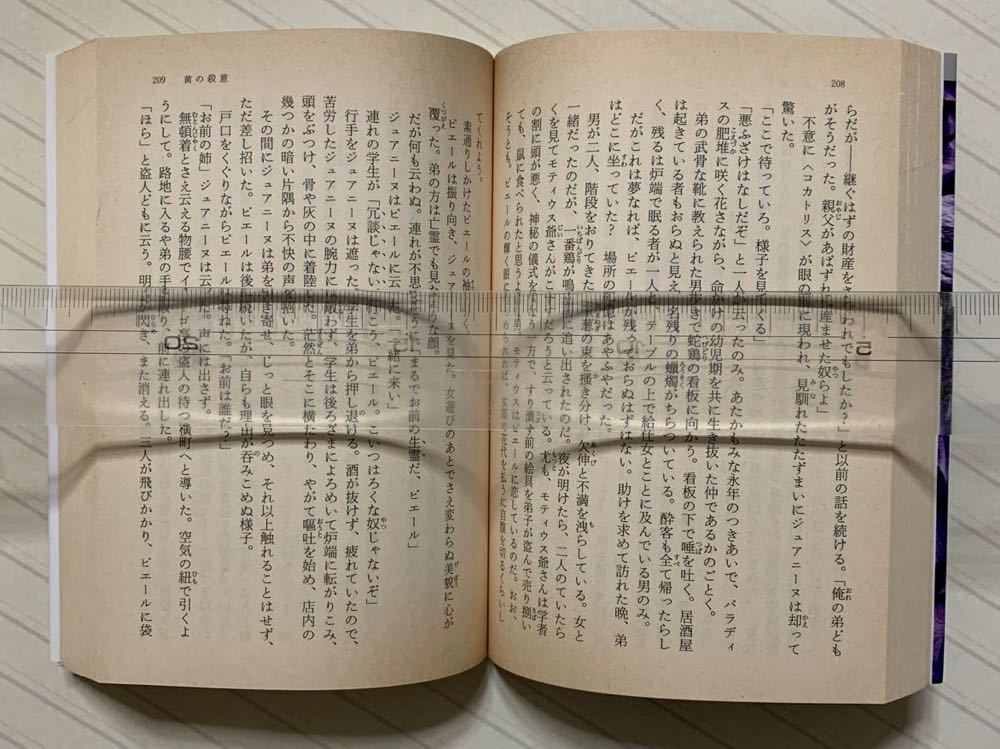 208
らだが――継ぐはずの財産を われでもしたか？」と以前の話を続ける。「俺の弟ども
がそうだった。親父があばずれに産ませた奴らよ」
不意に〈コカトリス〉が眼の前に現われ、見馴れたたたずまいにジュアニーヌは却って
驚いた。
「ここで待っていろ。様子を見てくる」
「悪ふざけはなしだぞ」と一人が云ったのみ。あたかもみな永年のつきあいで、パラディ
スの肥堆に咲く花さながら、命がけの幼児期を共に生き抜いた仲であるかのごとく。
弟の武骨な靴に教えられた男歩きで蛇鶏の看板に向かう。看板の下で唾を吐く。居酒屋
は起きている者もおらぬと見え、名残りの蠟燭がちらついている。酔客も全て帰ったらし
く、残るは炉端で眠る者が一人と、テーブルの上で給仕女とことに及んでいる男のみ。
だがこれは夢なれば、ピエールが残っておらぬはずはない。助けを求めて訪れた晩、弟
はどこに坐っていた？ 場所の記憶はあやふやだった。
男が二人、階段をおりてきた。 葱の束を掻き分け、欠伸と不満を洩らしている。女と
一緒だったのだが、一番鶏が鳴 前に追い出されたのだ。夜が明けたら、二人のていたら
くを見てモティウス爺さんがこ だろうと云っている。尤も、モティウス爺さんは学者
の割に頭が悪く、神秘の儀式を 一方で、すり潰す前の絵具を弟子が盗んで売り捌い
ても、鼠に食べられたと思うよ 男。モティウスはピエールに恋しているのだ。おお、
そうとも。ピエールの輝く眼に められれば、女郎の花代を払うに自腹を切るくらいし
209 黄の殺意
てくれよう。
素通りしかけたピエールの袖を く。
ピエールは振り向き、ジュア ーヌを見た。女遊びのあとでさえ変わらぬ美貌に心が
覆った。弟の方は亡霊でも見 ような顔。
だが何も云わぬ。連れが不思 うに「まるでお前の生霊だ、ピエール」
ジュアニーヌはピエールに云 た。「一緒に来い」
連れの学生が「冗談じゃない。行こう、ピエール。こいつはろくな奴じゃないぞ」
行手をジュアニーヌは遮った。学生を弟から押し退ける。酒が抜けず、疲れていたので、
苦労したジュアニーヌの腕力に 敵わず、学生は後ろざまによろめいて炉端に転がりこみ、
頭をぶつけ、骨や灰の中に着陸した。茫然とそこに横たわり、やがて嘔吐を始め、店内の
幾つかの暗い片隅から不快の声を招いた。
その間にジュアニーヌは弟を引き寄せ、じっと眼を見つめ、それ以上触れることはせず、
ただ差し招いた。ピエールは後に続いたが、自らも理由が呑みこめぬ様子。
戸口をくぐりながらピエール 尋ねた。「お前は誰だ？」
「お前の姉」ジュアニーヌは云 だ。声には出さず。
無頓着とさえ云える物腰でイ は、盗人の待つ横町へと導いた。空気の紐で引くよ
うにして。路地に入るや弟の手 取り、前に連れ出した。
「ほら」と盗人どもに云う。明 閃き、また消える。三人が飛びかかり、ピエールに袋
5
10
20